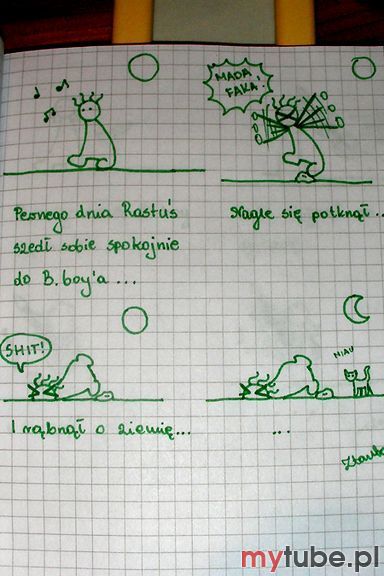 MADA
FAKA!
Pewnego dnia Rastuś
szedł sobie spokojnie
do B.boy'a ...
Nagle się potknął ..
SHIT!
NIAU
I rąbnął o ziemię...
...
mytube.pl